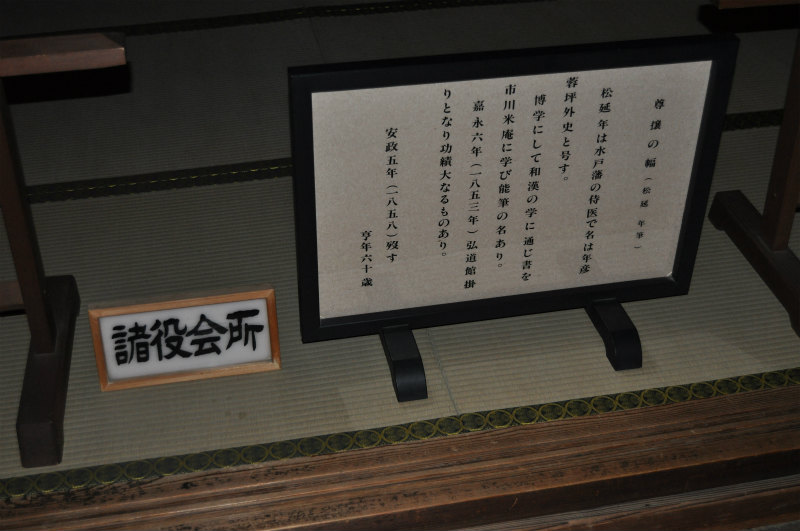 尊攘の幅（松延 年筆）
松延年は水戸藩の侍医で名は年彦
蓉坪外史と号す。
博学にして和漢の学に通じ書を
市川米庵に学び能筆の名あり。
嘉永六年（一八五三年）弘道館掛
りとなり功績大なるものあり。
安政五年（一八五八）歿す
享年六十歳
諸役会所